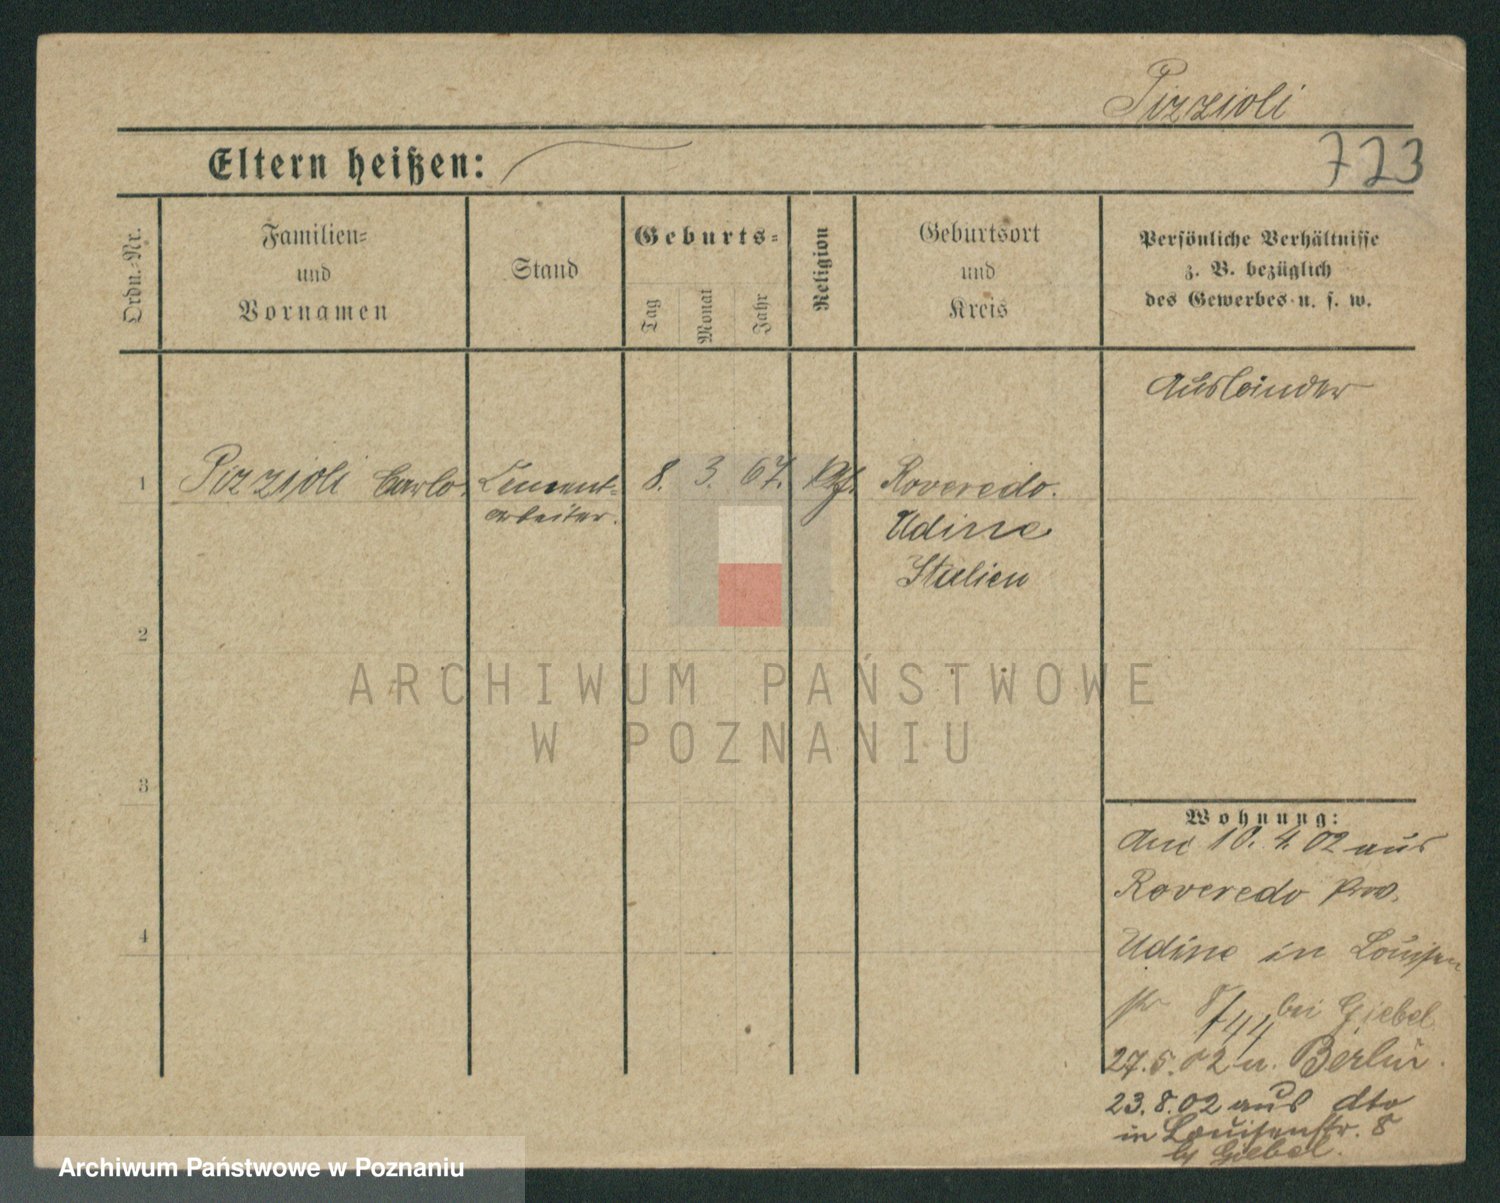 Pizzioli
Eltern heißen:
723
Ordn.-Nr.
Familien-
und
Vornamen
Stand
Geburts-
Tag
Monat
Jahr
Religion
Geburtsort
und
Kreis
Persönliche Verhältnisse
z. B. bezüglich
des Gewerbes u. s. w.
Ausländer
1 Pizzioli Carlo. Cement- 8. 3. 67. Roveredo.
arbeiter.
Udine
Italien
2
3
4
Wohnung:
10. 4. 02 aus
Roveredo Prov.
Udine in Louisen
str 8/44 bei Giebel
27.5.02 n. Berlin.
23.8.02 aus dto
in Louisenstr. 8
Giebel.
ARCHIWUM PAŃSTWOWE
W POZNANIU
Archiwum Państwowe w Poznaniu